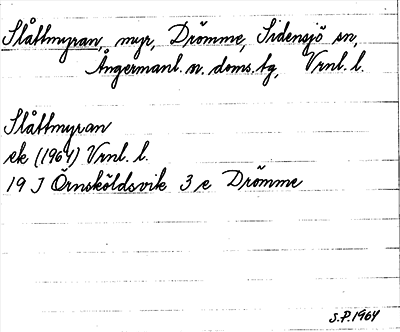 Slåttmyran, myr, Drömme, Sidensjö sn,
Ångermanl. n. doms. tg, Vrnl. l.
Slåttmyran
ek (1964) Vrnl. l.
19 J Örnsköldsvik 3 e Drömme
S.P. 1964